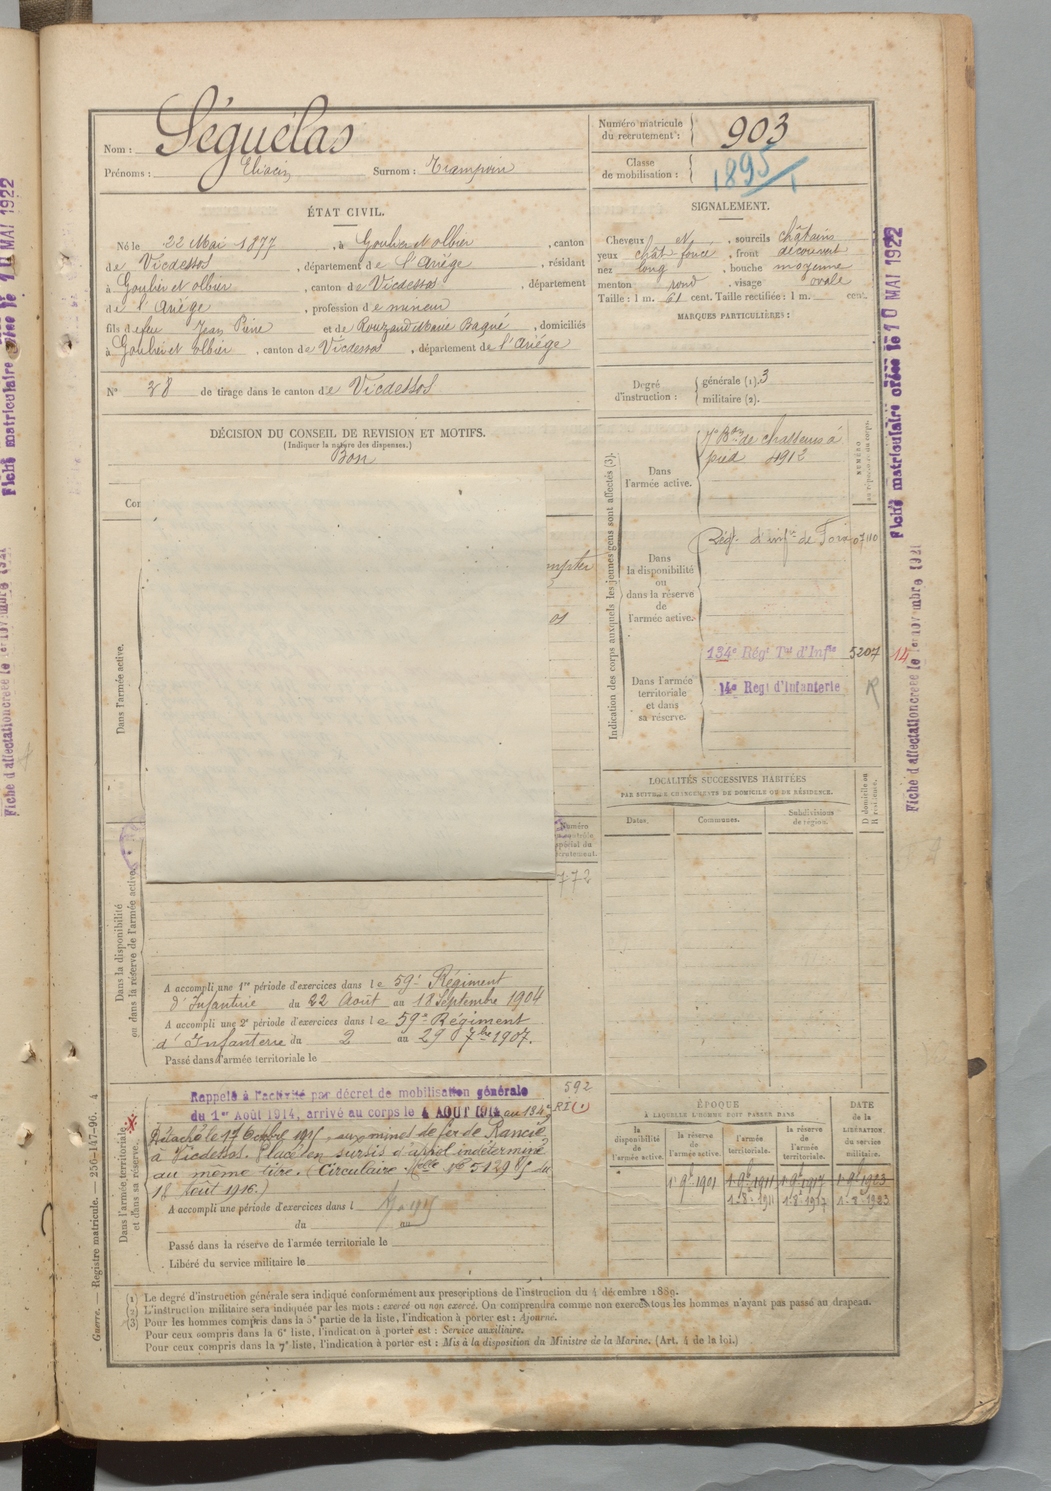 Nom : Séguélas
Prénoms : Eliacin Surnom : Trampoin
Numéro matricule du recrutement : 903
Classe de mobilisation : 1895
ÉTAT CIVIL.
Né le 22 Mai 1877, à Goulier et olbier, canton
de Vicdessos, département de l'Ariége, résidant
à Goulier et olbier, canton de Vicdessos, département
de l'Ariége, profession de mineur
fils de feu Jean Pierre et de Rouzaud Marie Bagué, domiciliés
à Goulier et olbier, canton de Vicdessos, département de l'Ariége
N° 38 de tirage dans le canton de Vicdessos
SIGNALEMENT.
Cheveux N, sourcils châtains
yeux chât foncé, front découvert
nez long, bouche moyenne
menton rond, visage ovale
Taille : 1 m. 61 cent. Taille rectifiée : 1 m. cent.
MARQUES PARTICULIÈRES :
Degré d'instruction : générale (1). 3
militaire (2).
DÉCISION DU CONSEIL DE REVISION ET MOTIFS.
(Indiquer la nature des dispenses.)
Bon
Dans l'armée active.
Dans la disponibilité
ou dans la réserve de l'armée active.
772
A accompli une 1re période d'exercices dans le 59e Régiment
d'Infanterie du 22 Août au 18 Septembre 1904
A accompli une 2e période d'exercices dans le 59e Régiment
d'Infanterie du 2 au 29 7bre 1907.
Passé dans l'armée territoriale le
Dans l'armée territoriale
et dans sa réserve.
Rappelé à l'activité par décret de mobilisation générale
du 1er Août 1914, arrivé au corps le 4 AOUT 1914 au 134e
592
RI (1)
Détaché le 17 Octobre 1915, aux mines de fer de Rancié
à Vicdessos. Placé en sursis d'appel indéterminé
au même titre. (Circulaire
Août 1916.)
A accompli une période d'exercices dans l
du au
Passé dans la réserve de l'armée territoriale le
Libéré du service militaire le
Indication des corps auxquels les jeunes gens sont affectés (3).
Dans l'armée active.
7e Bon de chasseurs à
pied 4912
Dans la disponibilité ou dans la réserve de l'armée active.
Régt d'infie de Foix 07110
134e Régt Tal d'Infie 5207 14
Dans l'armée territoriale et dans sa réserve.
14e Regt d'Infanterie R
LOCALITÉS SUCCESSIVES HABITÉES
PAR SUITE DE CHANGEMENTS DE DOMICILE OU DE RÉSIDENCE.
Dates. Communes. Subdivisions de région. D domicile ou R résidence.
ÉPOQUE
À LAQUELLE L'HOMME DOIT PASSER DANS
DATE de la LIBÉRATION du service militaire.
la disponibilité de l'armée active. la réserve de l'armée active. l'armée territoriale. la réserve de l'armée territoriale.
1 9bre 1901 1 9bre 1911 1 9bre 1917 1 9bre 1923
1-8e-1911 1-8e-1917 1-8-1923
(1) Le degré d'instruction générale sera indiqué conformément aux prescriptions de l'instruction du 4 décembre 1889.
(2) L'instruction militaire sera indiquée par les mots : exercé ou non exercé. On comprendra comme non exercés tous les hommes n'ayant pas passé au drapeau.
(3) Pour les hommes compris dans la 5e partie de la liste, l'indication à porter est : Ajourné.
Pour ceux compris dans la 6e liste, l'indication à porter est : Service auxiliaire.
Pour ceux compris dans la 7e liste, l'indication à porter est : Mis à la disposition du Ministre de la Marine. (Art. 4 de la loi.)
Guerre. — Registre matricule. — 256-147-96. 4
Fiche matriculaire créée le 10 MAI 1922
Fiche d'affectation créée le 1er novembre 1921